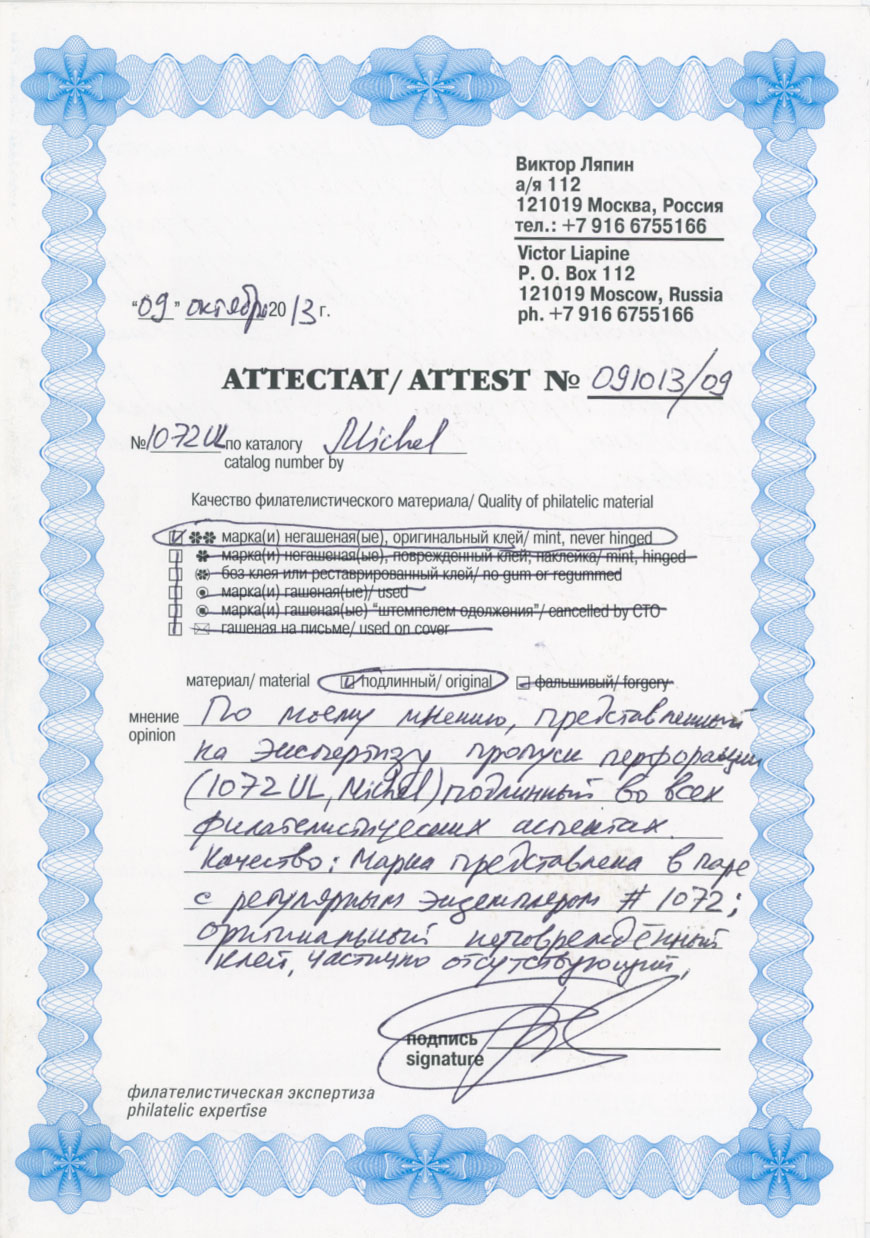 Виктор Ляпин
а/я 112
121019 Москва, Россия
тел.: +7 916 6755166
Victor Liapine
P. O. Box 112
121019 Moscow, Russia
ph. +7 916 6755166
"09" октября 2013 г.
АТТЕСТАТ/ ATTEST № 091013/09
№ 1072 UL по каталогу Michel
catalog number by
Качество филателистического материала/ Quality of philatelic material
марка(и) негашеная(ые), оригинальный клей/ mint, never hinged
марка(и) негашеная(ые), поврежденный клей, наклейка/ mint, hinged
без клея или реставрированный клей/ no gum or regummed
марка(и) гашеная(ые)/ used
марка(и) гашеная(ые) "штемпелем одолжения"/ cancelled by CTO
гашеная на письме/ used on cover
материал/ material подлинный/ original фальшивый/ forgery
мнение
opinion
По моему мнению, представленный
на экспертизу пропуск перфорации
(1072 UL, Michel) подлинный во всех
филателистических аспектах.
Качество: Марка представлена в паре
с регулярным экземпляром # 1072;
оригинальный неповреждённый
клей, частично отсутствующий,
подпись
signature
филателистическая экспертиза
philatelic expertise